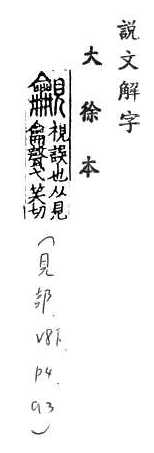 說文解字
大徐本
視誤也从見
龠聲弋笑切
(見部. v8下. p4. a3)